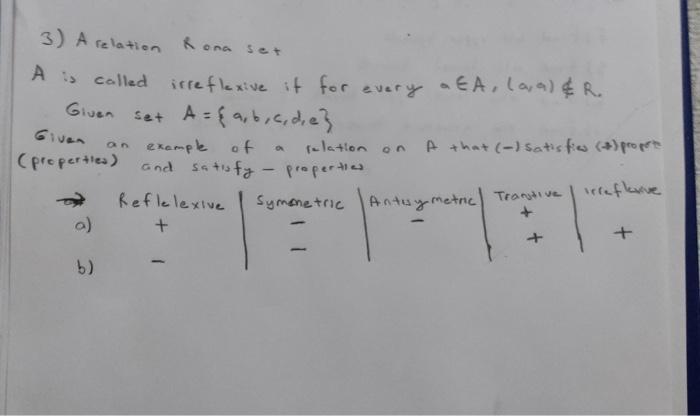 3) A relation R on a set
A is called irreflexive if for every a ∈ A, (a,a) ∉ R.
Given set A = {a,b,c,d,e}
Given an example of a relation on A that (-) satisfies (+)
(properties) and satisfy - properties
→ Reflelexive | Symmetric | Antisymmetric | Transitive | irreflexive
a) + - - +
- + +
b) -